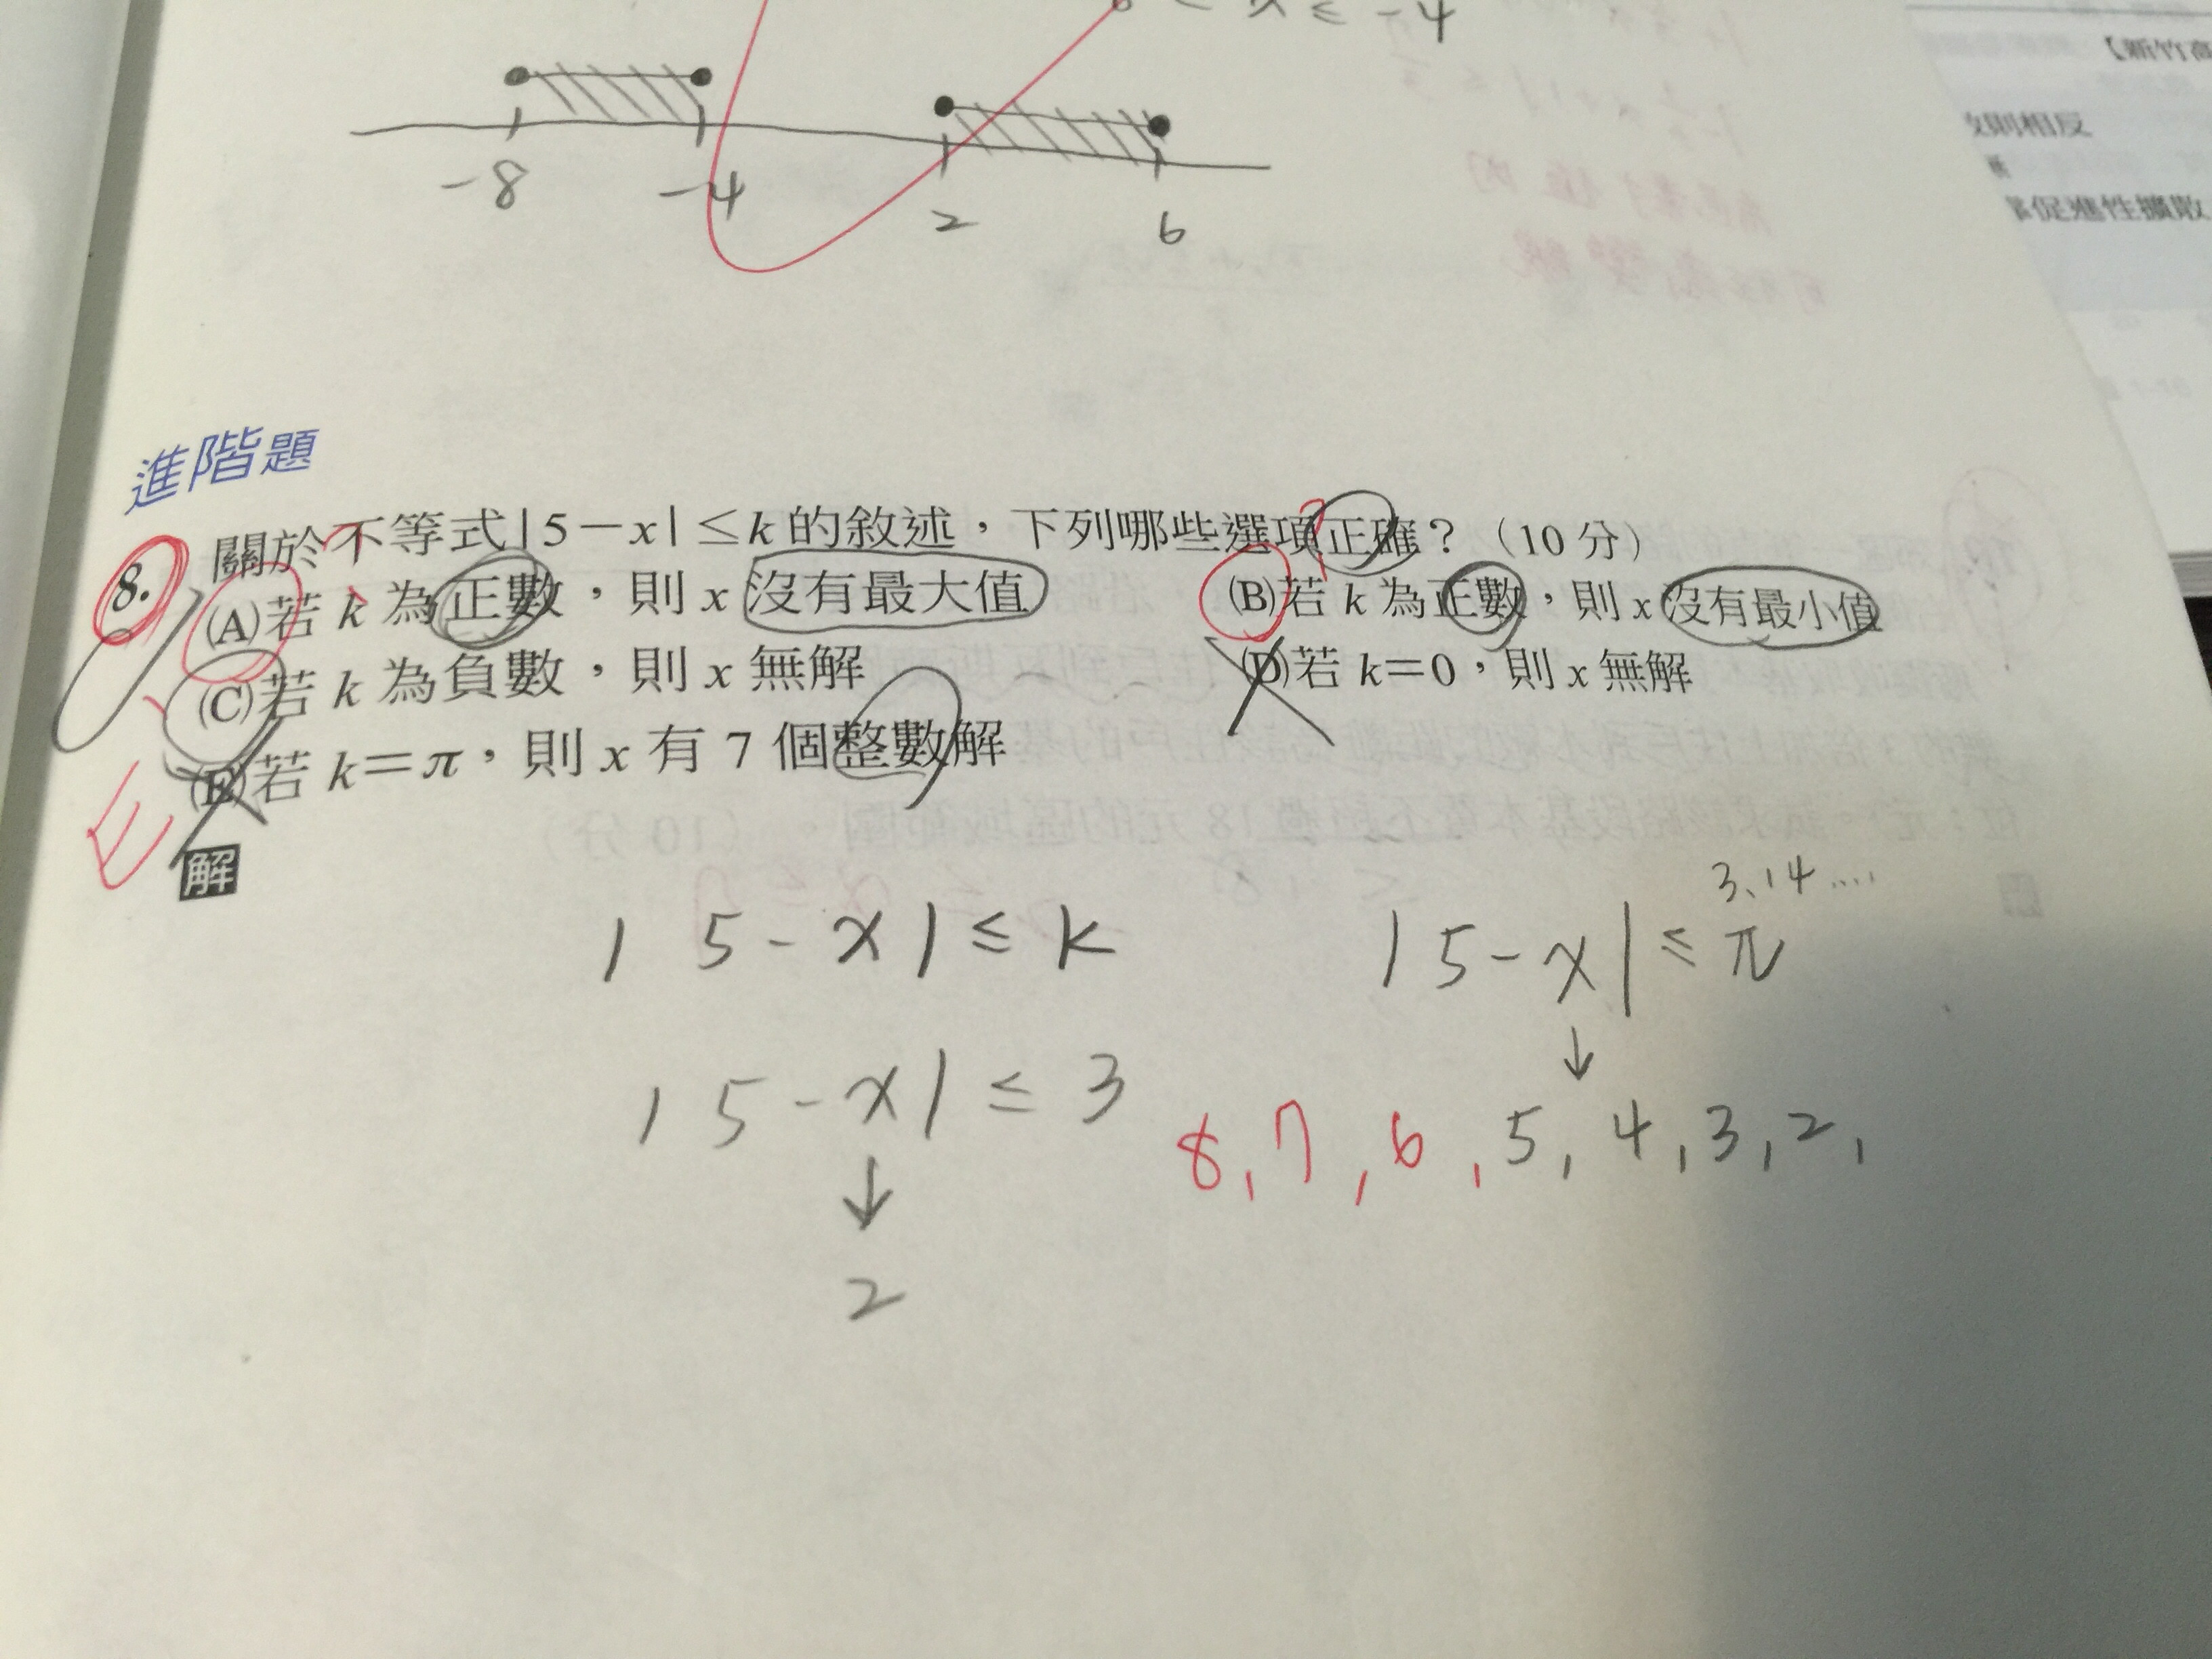 ≤ x ≤ -4
-8 -4 2 6
【新竹高
則相反
促進性擴散
進階題
8. 關於不等式|5-x|≤k的敘述，下列哪些選項正確？（10分）
(A)若 k 為正數，則 x 沒有最大值
(B)若 k 為正數，則 x 沒有最小值
(C)若 k 為負數，則 x 無解
(D)若 k=0，則 x 無解
(E)若 k=π，則 x 有 7 個整數解
E
解
|5-x|≤k
3.14....
|5-x|≤π
|5-x|≤3
↓
8,7,6,5,4,3,2,
↓
2